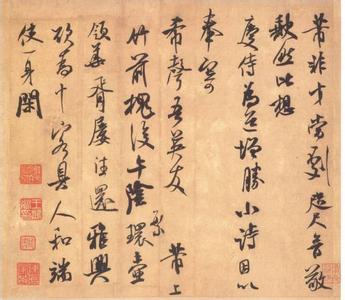 芾非才當劇咫尺音敬
缺然比想
履侍為道增勝小詩因以
奉寄
希聲吾英友 芾上
竹前槐後午陰環壺
領華胥屢往還雅興
欲為十客具人和端
使一身閑